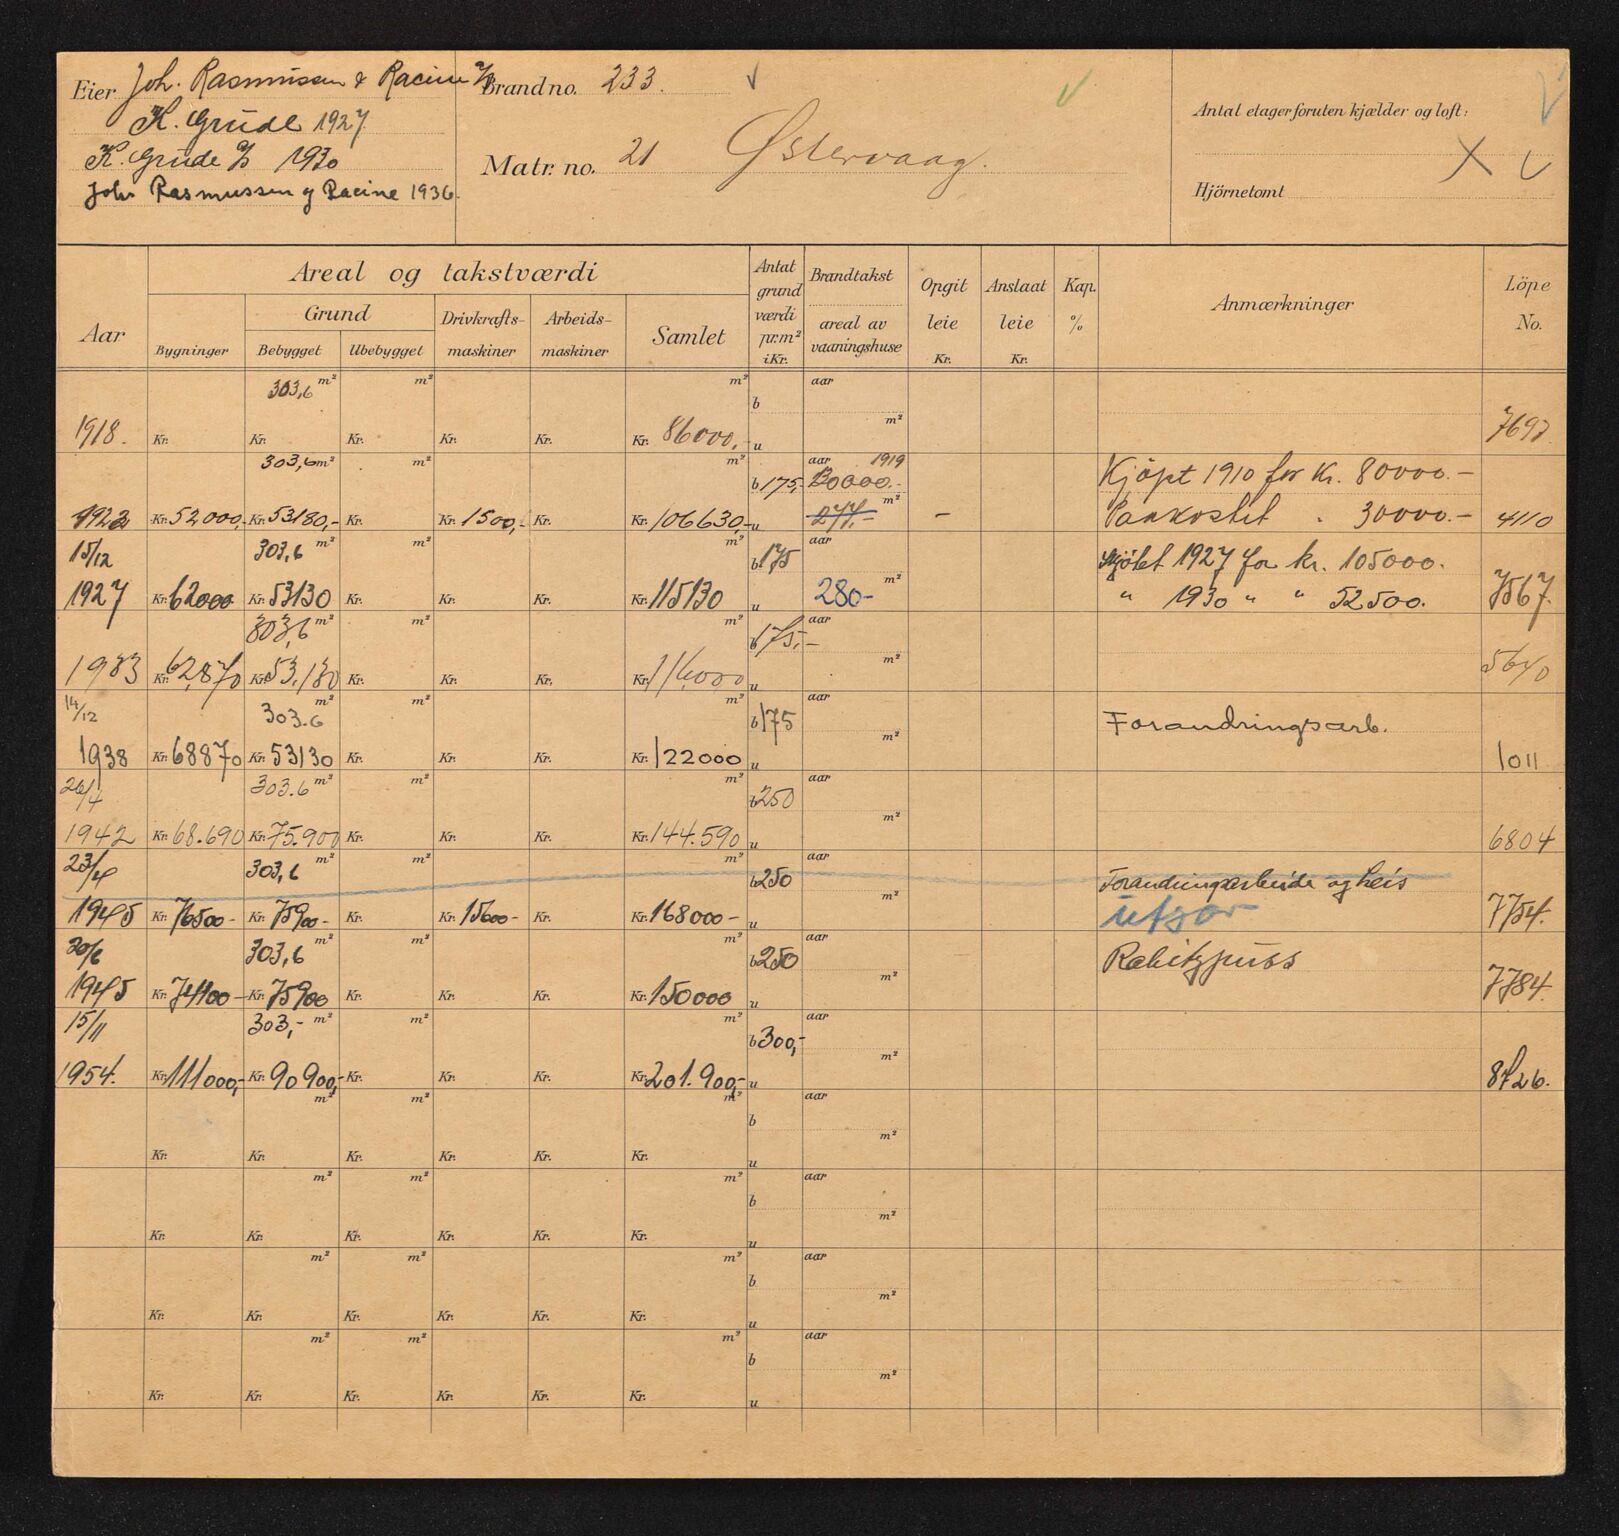 Eier Joh. Rasmussen & Racine A/S
K. Grude 1927
K. Grude A/S 1930
Joh. Rasmussen og Racine 1936.
Brand no. 233.
Matr. no. 21 Østervaag.
Antal etager foruten kjælder og loft:
Hjörnetomt
Areal og takstværdi
Aar
Bygninger
Grund
Bebygget
Ubebygget
Drivkrafts-
maskiner
Arbeids-
maskiner
Samlet
Antat
grund
værdi
pr. m²
i Kr.
Brandtakst
areal av
vaaningshuse
Opgit
leie
Kr.
Anslaat
leie
Kr.
Kap.
%
Anmærkninger
Löpe
No.
303,6 m² m² m² aar
b
m²
1918. Kr. Kr. Kr. Kr. Kr. Kr. 86000,- u 7697
303,6 m² m² m² aar 1919
b 175,- Kjöpt 1910 for Kr. 80000.-
m²
1922 Kr. 52000,- Kr. 53130,- Kr. Kr. 1500,- Kr. Kr. 106630,- u 277,- - Paakostet " 30000.- 4110
15/12 303,6 m² m² m² aar
b 175 Skjøtet 1927 for kr. 105000.
m²
1927 Kr. 62000 Kr. 53130 Kr. Kr. Kr. Kr. 115130 u 280- " 1930 " " 52500. 7567.
303,6 m² m² m² aar
b 175,-
m²
1933 Kr. 62,870 Kr. 53,130 Kr. Kr. Kr. Kr. 116,000 u 5640
14/12 303.6 m² m² m² aar
b 175 Forandringsarb.
m²
1938 Kr. 68870 Kr. 53130 Kr. Kr. Kr. Kr. 122000 u 1011
26/4 303.6 m² m² m² aar
b 250
m²
1942 Kr. 68.690 Kr. 75.900 Kr. Kr. Kr. Kr. 144.590 u 6804
23/4 303,6 m² m² m² aar
b 250 Forandringsarbeide og heis
m²
1945 Kr. 76500- Kr. 75900- Kr. Kr. 15600- Kr. Kr. 168000- u utgår 7754.
20/6 303,6 m² m² m² aar
b 250 Rabitzpuss
m²
1945 Kr. 74100- Kr. 75900 Kr. Kr. Kr. Kr. 150000 u 7784.
15/11 303,- m² m² m² aar
b 300,-
m²
1954. Kr. 111000,- Kr. 90900,- Kr. Kr. Kr. Kr. 201.900,- u 8726.
m² m² m² aar
b
m²
Kr. Kr. Kr. Kr. Kr. Kr. u
m² m² m² aar
b
m²
Kr. Kr. Kr. Kr. Kr. Kr. u
m² m² m² aar
b
m²
Kr. Kr. Kr. Kr. Kr. Kr. u
m² m² m² aar
b
m²
Kr. Kr. Kr. Kr. Kr. Kr. u